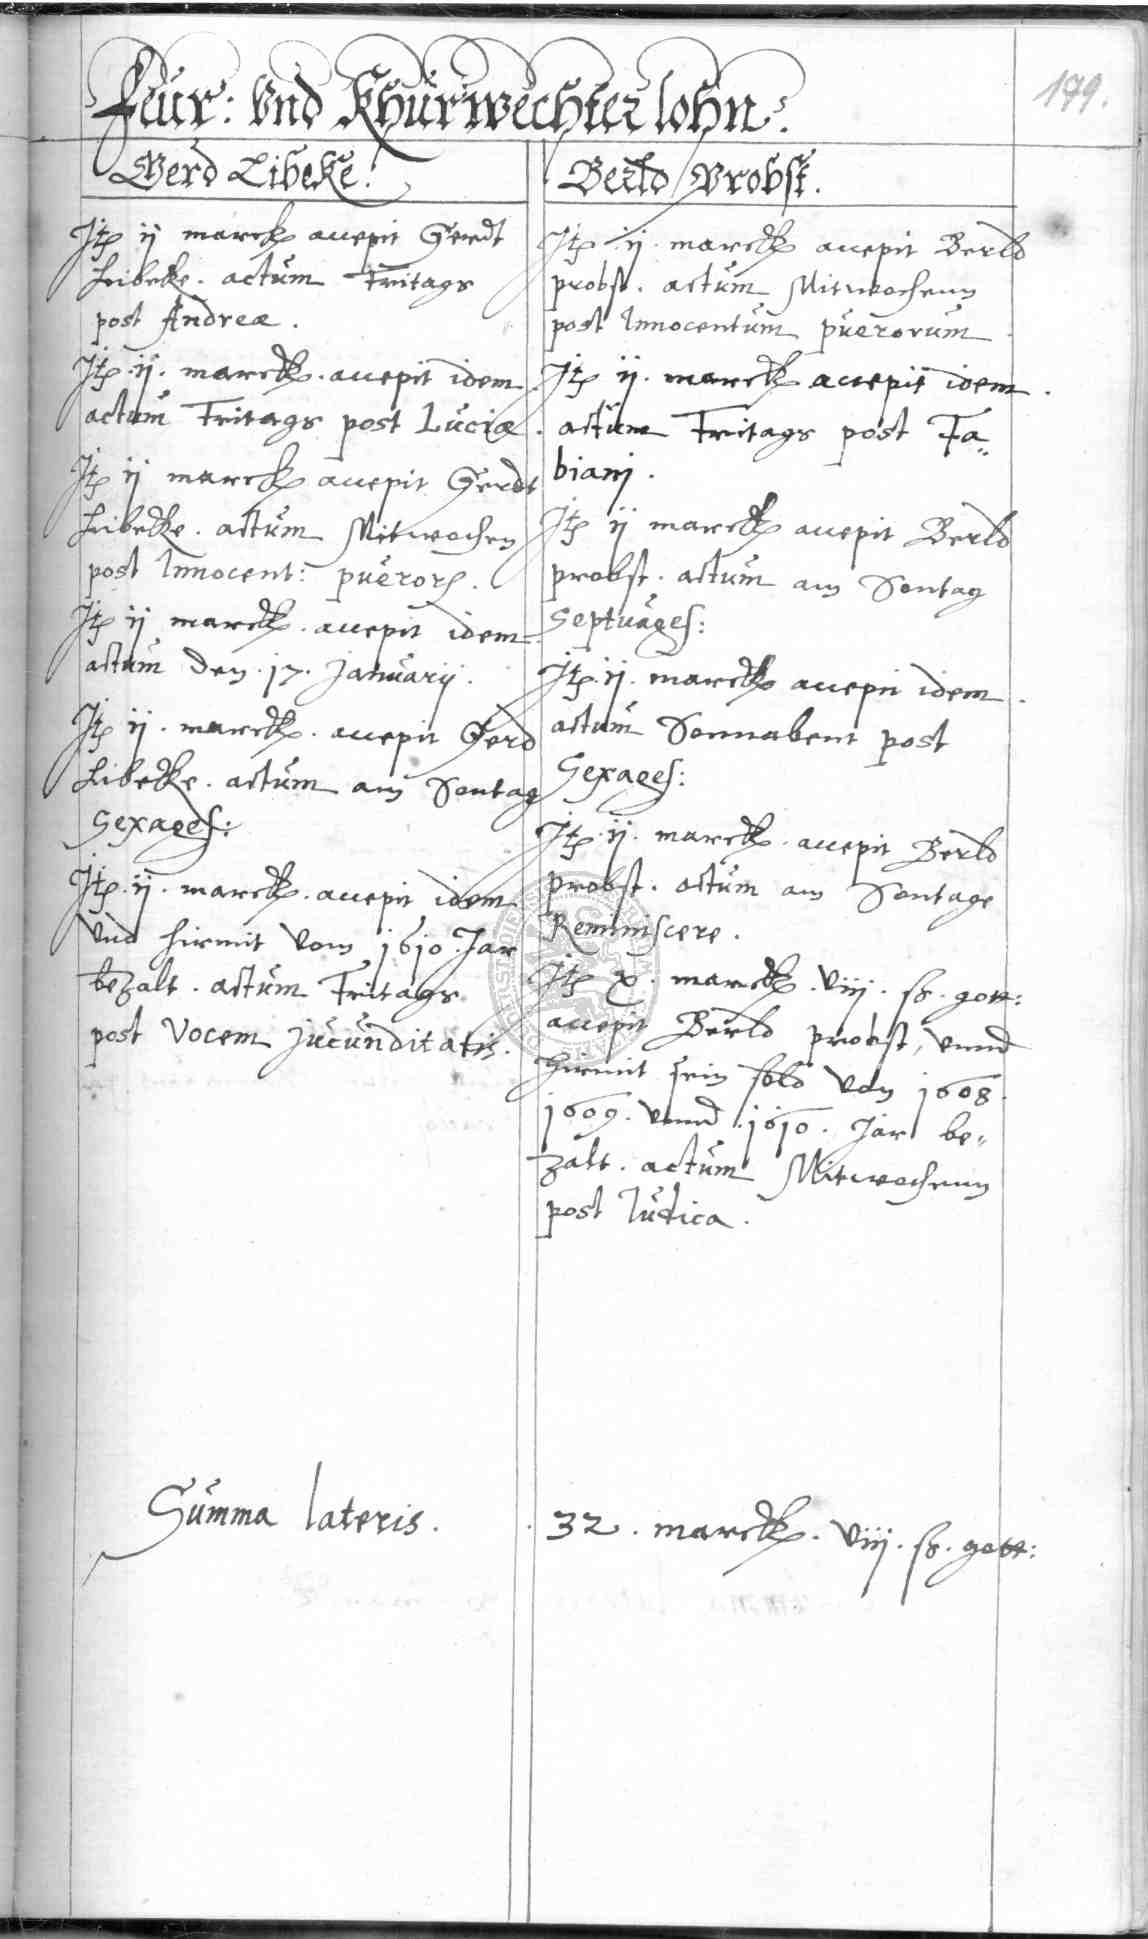 179.
Feur: vnd Khurwechter lohn:
Gerd Libeke.
Jtem ij marck accepit Gerdt
Libecke. actum Fritags
post Andreæ.
Jtem .ij. marck. accepit idem
actum Fritags post Luciæ.
Jtem ij marck accepit Gerdt
Libecke. actum Mitwochen
post Innocent: pueror.
Jtem ij marck. accepit idem
actum den .17. Januarij.
Jtem ij. marck. accepit Gerd
Libecke. actum am Sontag
Sexages:
Jtem .ij. marck. accepit idem
vnd hirmit vom 1610 Jar
bezalt. actum Fritags
post Vocem jucunditatis.
Berld Probst.
Jtem .ij. marck accepit Berld
probst. actum Mitwochenn
post Innocentum puerorum
Jtem ij. marck accepit idem.
actum Fritags post Fa„
biani.
Jtem ij marck accepit Berld
probst. actum am Sontag
Septuages:
Jtem .ij. marck accepit idem.
actum Sonnabent post
Sexages:
Jtem .ij. marck. accepit Berld
probst. actum am Sontage
Reminiscere.
Jtem x. marck. viij. ß. gott:
accepit Berld probst, vnnd
hirmit sein sold von 1608.
1609. vnnd .1610. Jar be„
zalt. actum Mitwochenn
post Iudica.
Summa lateris. 32. marck. viij. ß. gott: